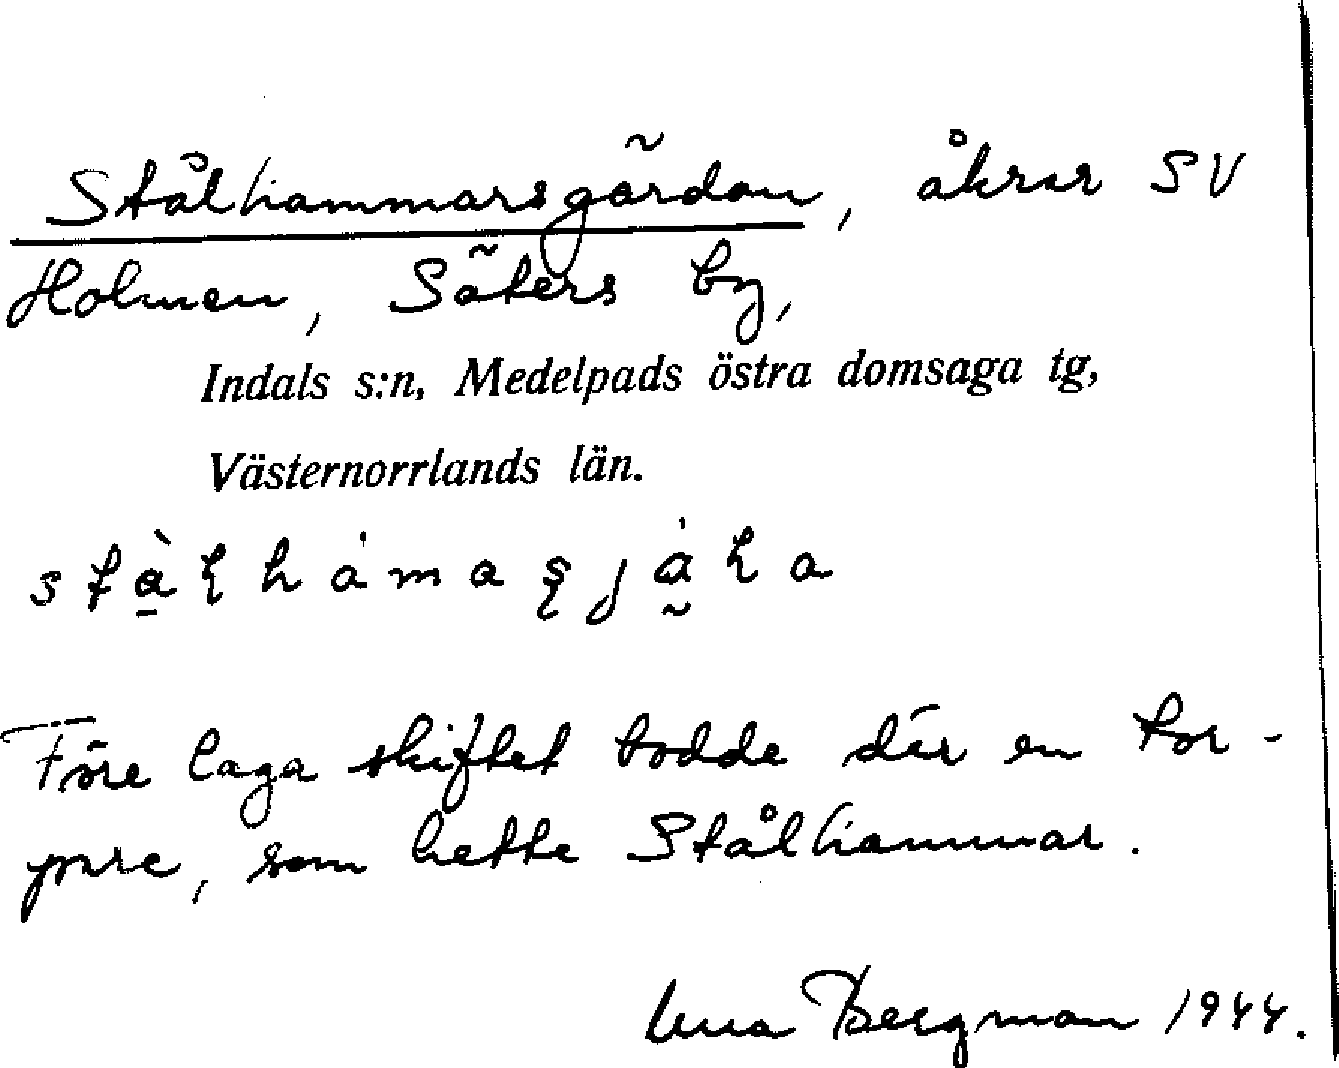 Stålhammarsgärdan, åkrar SV
Holmen, Säters by,
Indals s:n, Medelpads östra domsaga tg,
Västernorrlands län.
Före laga skiftet bodde där en tor-
pare, som hette Stålhammar.
Bergman 1944.